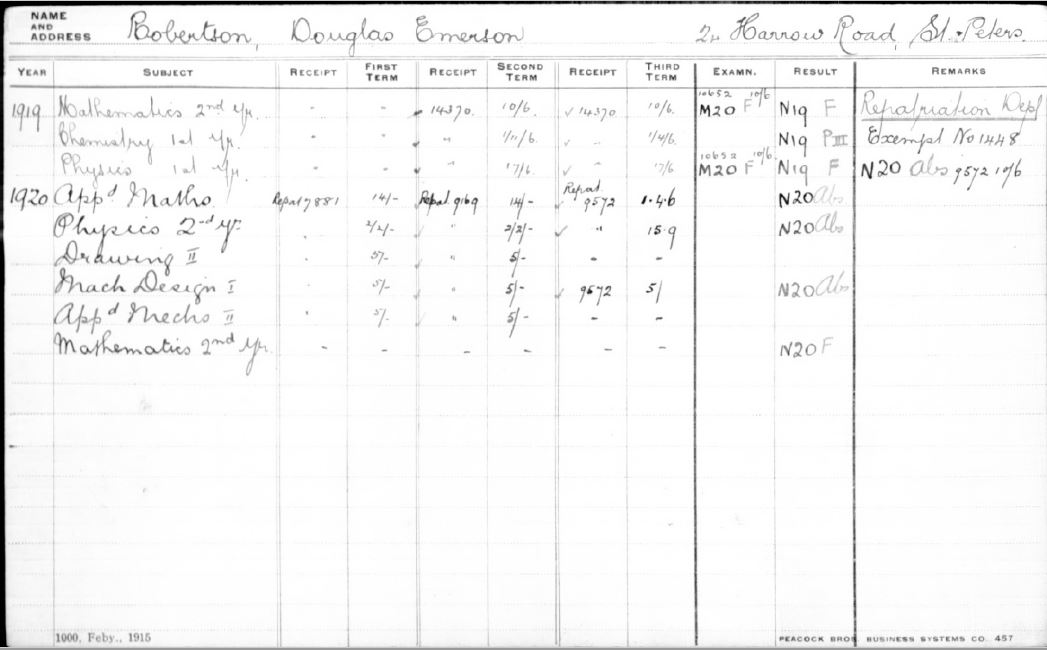 NAME AND ADDRESS Robertson, Douglas Emerson 2, Harrow Road, St. Peters.
YEAR SUBJECT RECEIPT FIRST TERM RECEIPT SECOND TERM RECEIPT THIRD TERM EXAMN. RESULT REMARKS
10652 10/6
1919 Mathematics 2nd yr. - - 14370. 10/6. ✓ 14370. 10/6. M20 F N19 F Repatriation Dept
Chemistry 1st yr. - - " 1/11/6. ✓ " 1/4/6. N19 PIII Exempt No 1448
10652 10/6.
Physics 1st yr. - - " 17/6. ✓ " 17/6 M20 F N19 F N20 Abs 9572 10/6
1920 Appd Maths. Repat 7881 14/- Repat. 9169 14/- ✓ Repat. 9572 1.4.6 N20 Abs
Physics 2nd yr. 2/2/- ✓ " 2/2/- ✓ " 15.9 N20 Abs
Drawing II 5/- ✓ " 5/- - -
Mach Design I 5/- ✓ " 5/- ✓ 9572 5/ N20 Abs
Appd Mechs II 5/- ✓ " 5/- - -
Mathematics 2nd yr. - - - - - - N20 F
1000, Feby., 1915 PEACOCK BROS. BUSINESS SYSTEMS CO. 457